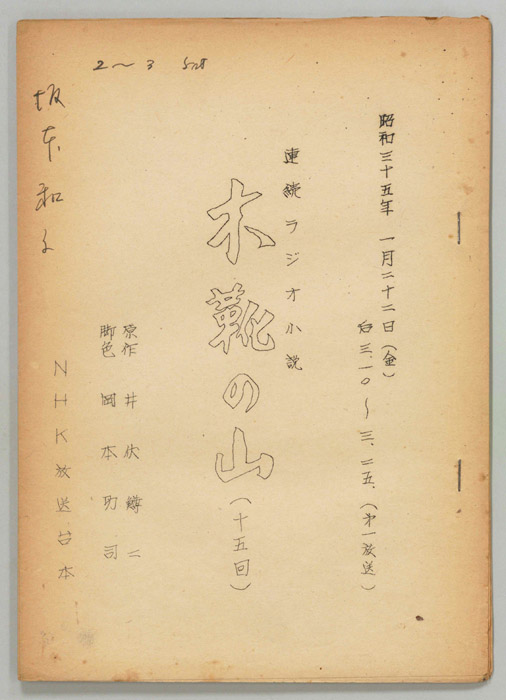 昭和三十五年 一月二十二日(金)
后三.一〇〜三.二五.(第一放送)
連続ラジオ小説
木靴の山(十五回)
原作 井伏鱒二
脚色 岡本功司
NHK放送台本
坂本和子
2〜3